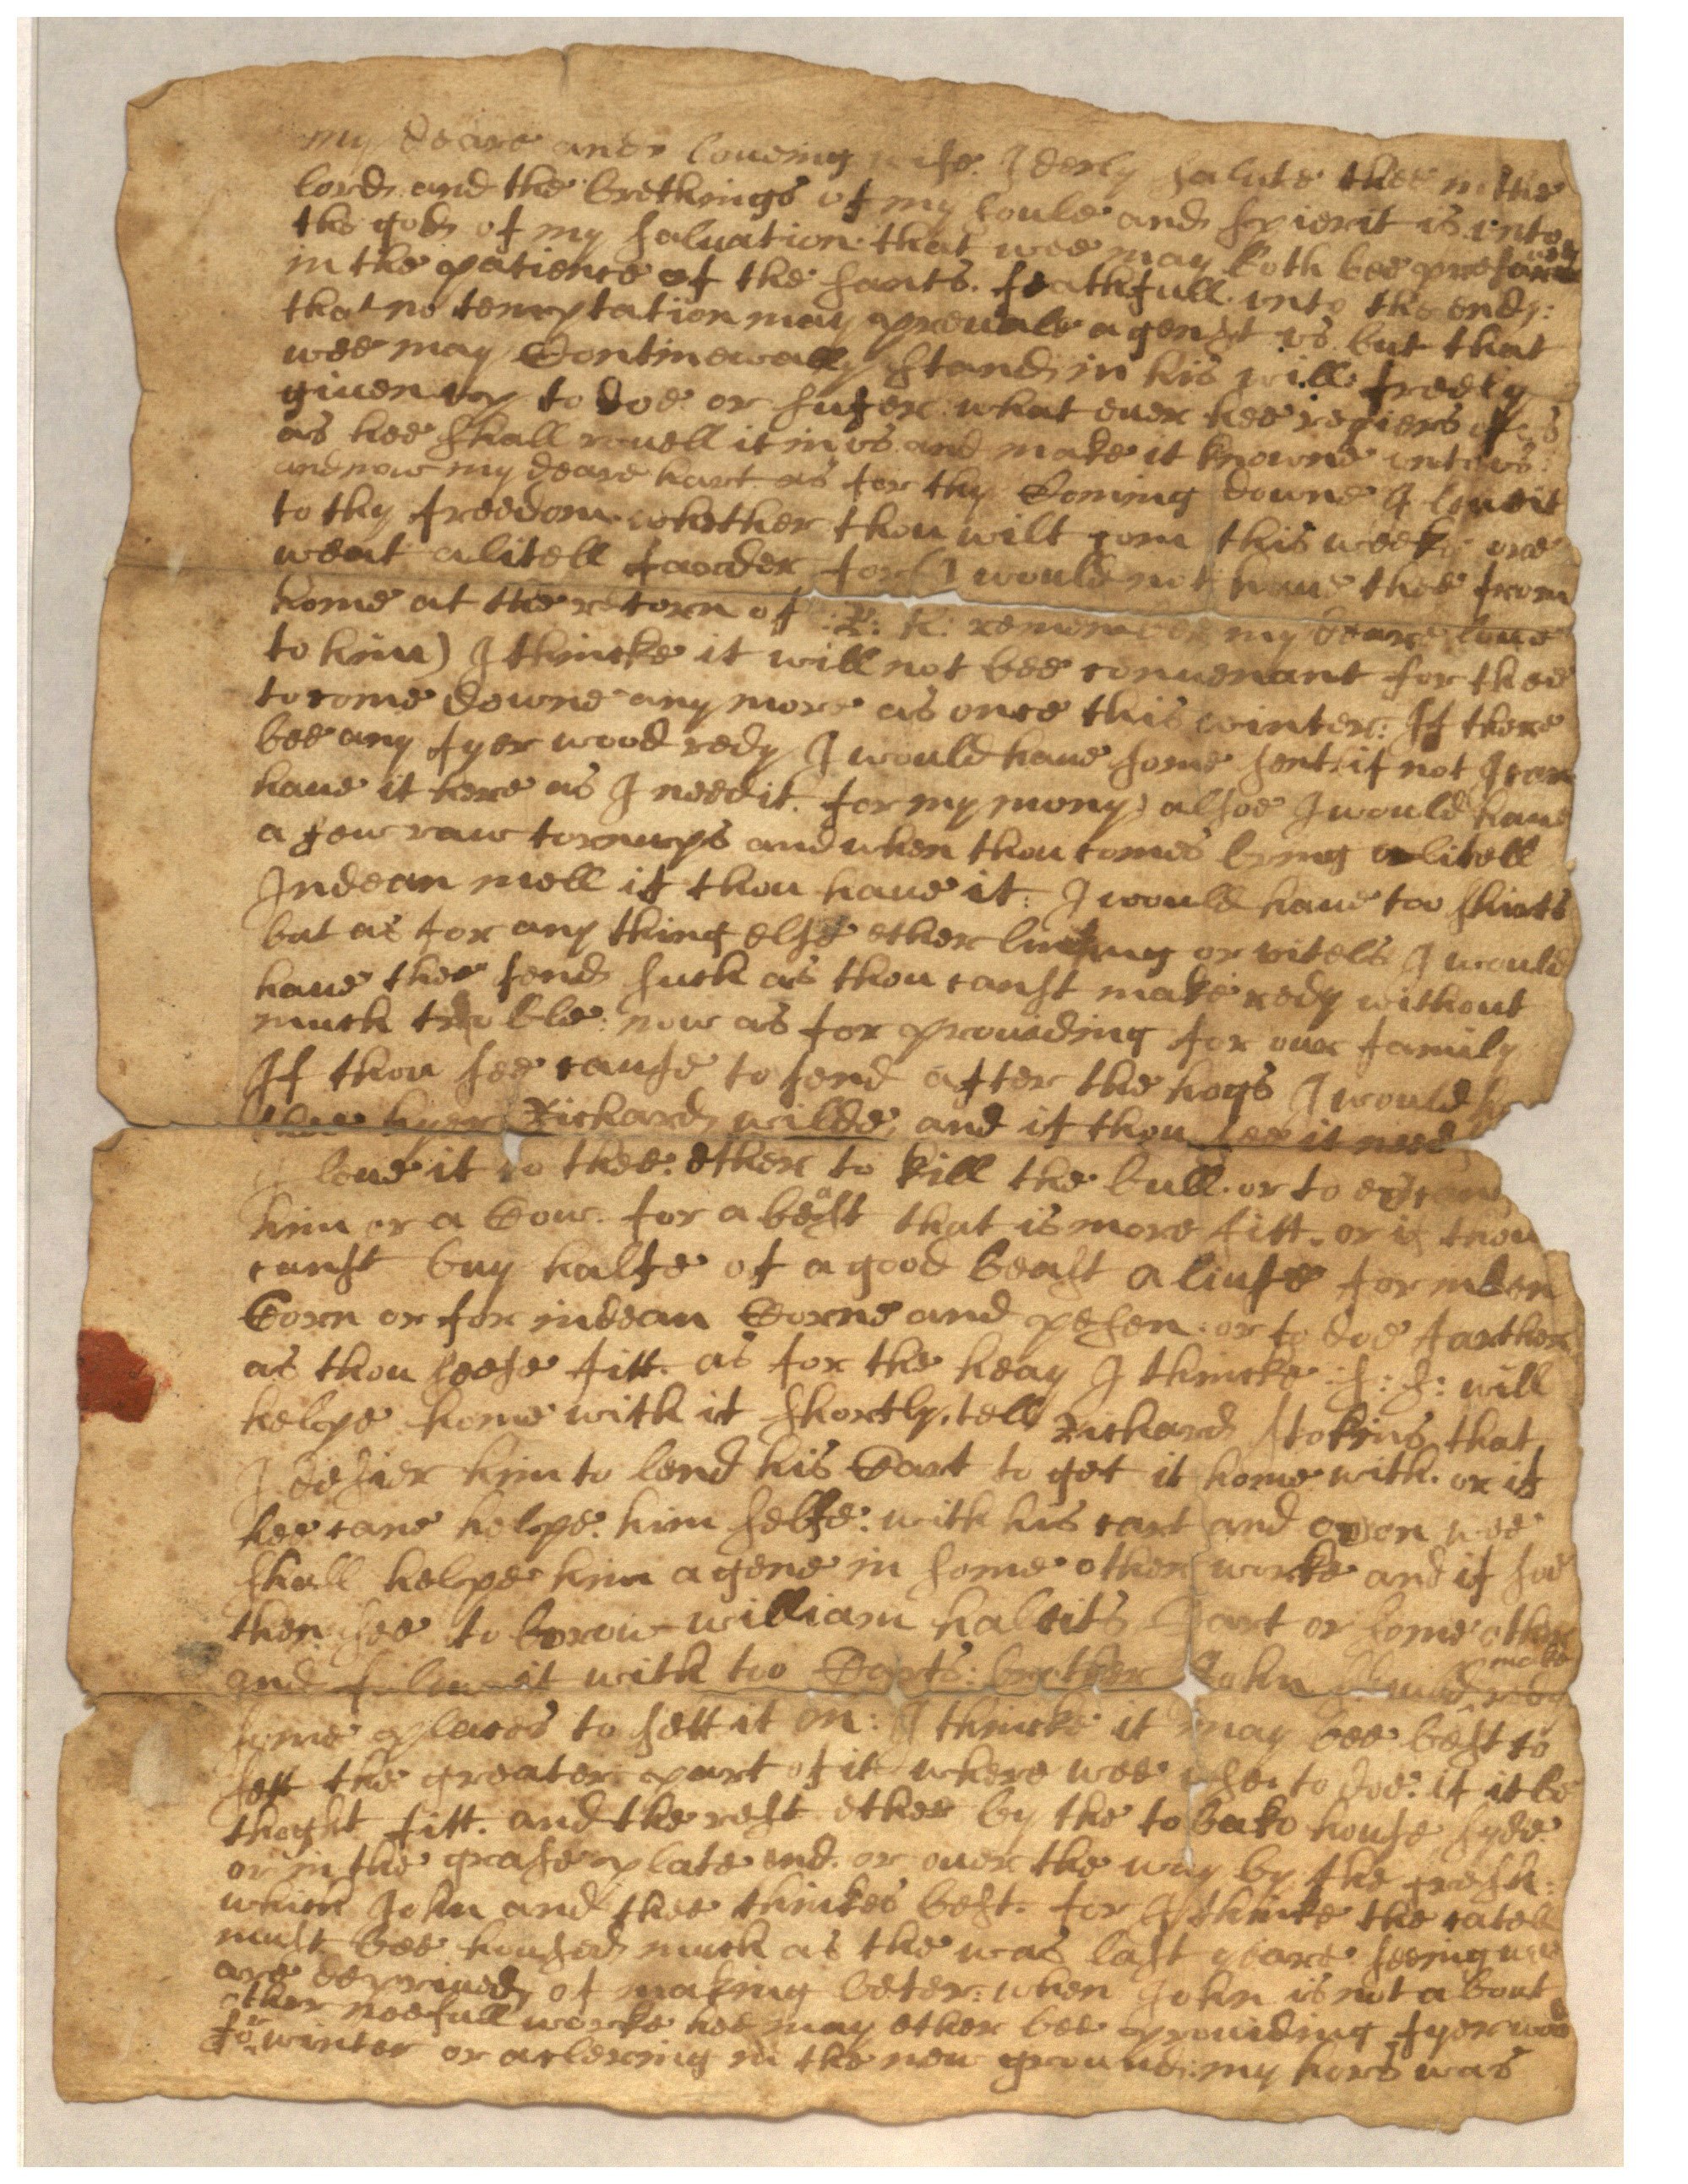 my deare and loueing wife I derly salute thee in the
lord and the brethings of my soule and spierit is vnto
the god of my saluation that wee may both bee presarued
in the patience of the sants. feathfull vnto the end:
that no temptation may preuale agenst vs but that
wee may Continewally stand in his will freely
giuen vp to doe or sufer what euer hee requiers of us
as hee shall reuell it in vs and make it knowne vnto vs:
and now my deare hart as for thy Coming downe I leueit
to thy freedom whether thou wilt com this weeke ore
weat alitell for (I would not haue thee from
home at the retorn of : R: K: remember my deare loue
to him) I thincke it will not bee conuenant for thee
to come downe any more as once this winter: If there
bee any fyer wood redy I would haue some sent: if not I can
haue it here as I need it. for my mony: alsoe I would haue
a few raw tornups and when thou comes bring a litell
Indean mell if thou haue it: I would haue too shirts
but as for any thing else ether or vitels I would
haue thee send such as thou canst make redy without
much troble: now as for prouiding for our family
If thou see cause to send after the hogs I would
thee hyer Richard wilde, and if thou see it need
I leue it to thee: ether to kill the bull. or to
him or a Cow. for a beast that is more fitt. or if thou
canst buy halfe of a good beast a liufe for
Corn or for indean Corne and pesen: or to doe farther
as thou seese fitt. as for the heay I thincke : S: S: will
helpe home with it shortly. tell Richard stokins that
I desier him to lend his Cart to get it home with. or if
hee cane helpe: him selfe: with his cart and oxen wee
shall helpe him agene in some other worke and if soe
then see to borow william halcits Cart or some other
and it with too Carts: brother John make redy
some places to sett it on: I thincke it may bee best to
sett the greater part of it where wee use to doe: if it be
thoght fitt. and the rest ether by the tobako house syde
or in the grase plate end. or ouer the way by the fresh:
which John and thee thinkes best. for I thinke the catell
must bee housed much as the was last yeare seeing wee
are depriued of making beter: when John is not about
other neefull worke hee may ether bee prouiding fyer wood
for winter or aclereing in the new ground: my hors was